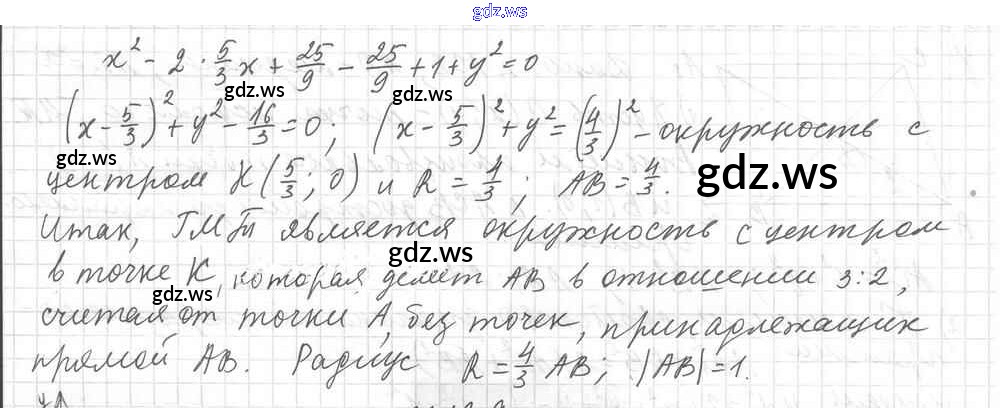 gdz.ws
x² - 2 · 5/3 x + 25/9 - 25/9 + 1 + y² = 0
gdz.ws gdz.ws
(x - 5/3)² + y² - 16/3 = 0; (x - 5/3)² + y² = (4/3)² - окружность с
gdz.ws
центром К (5/3; 0) и R = 1/3; АВ = 4/3.
gdz.ws
Итак, ГМТ является окружность с центром
в точке К, которая делит АВ в отношении 3:2,
gdz.ws
считая от точки А, без точек, принадлежащих
прямой АВ. Радиус R = 4/3 АВ; |АВ| = 1.
gdz.ws
gdz.ws